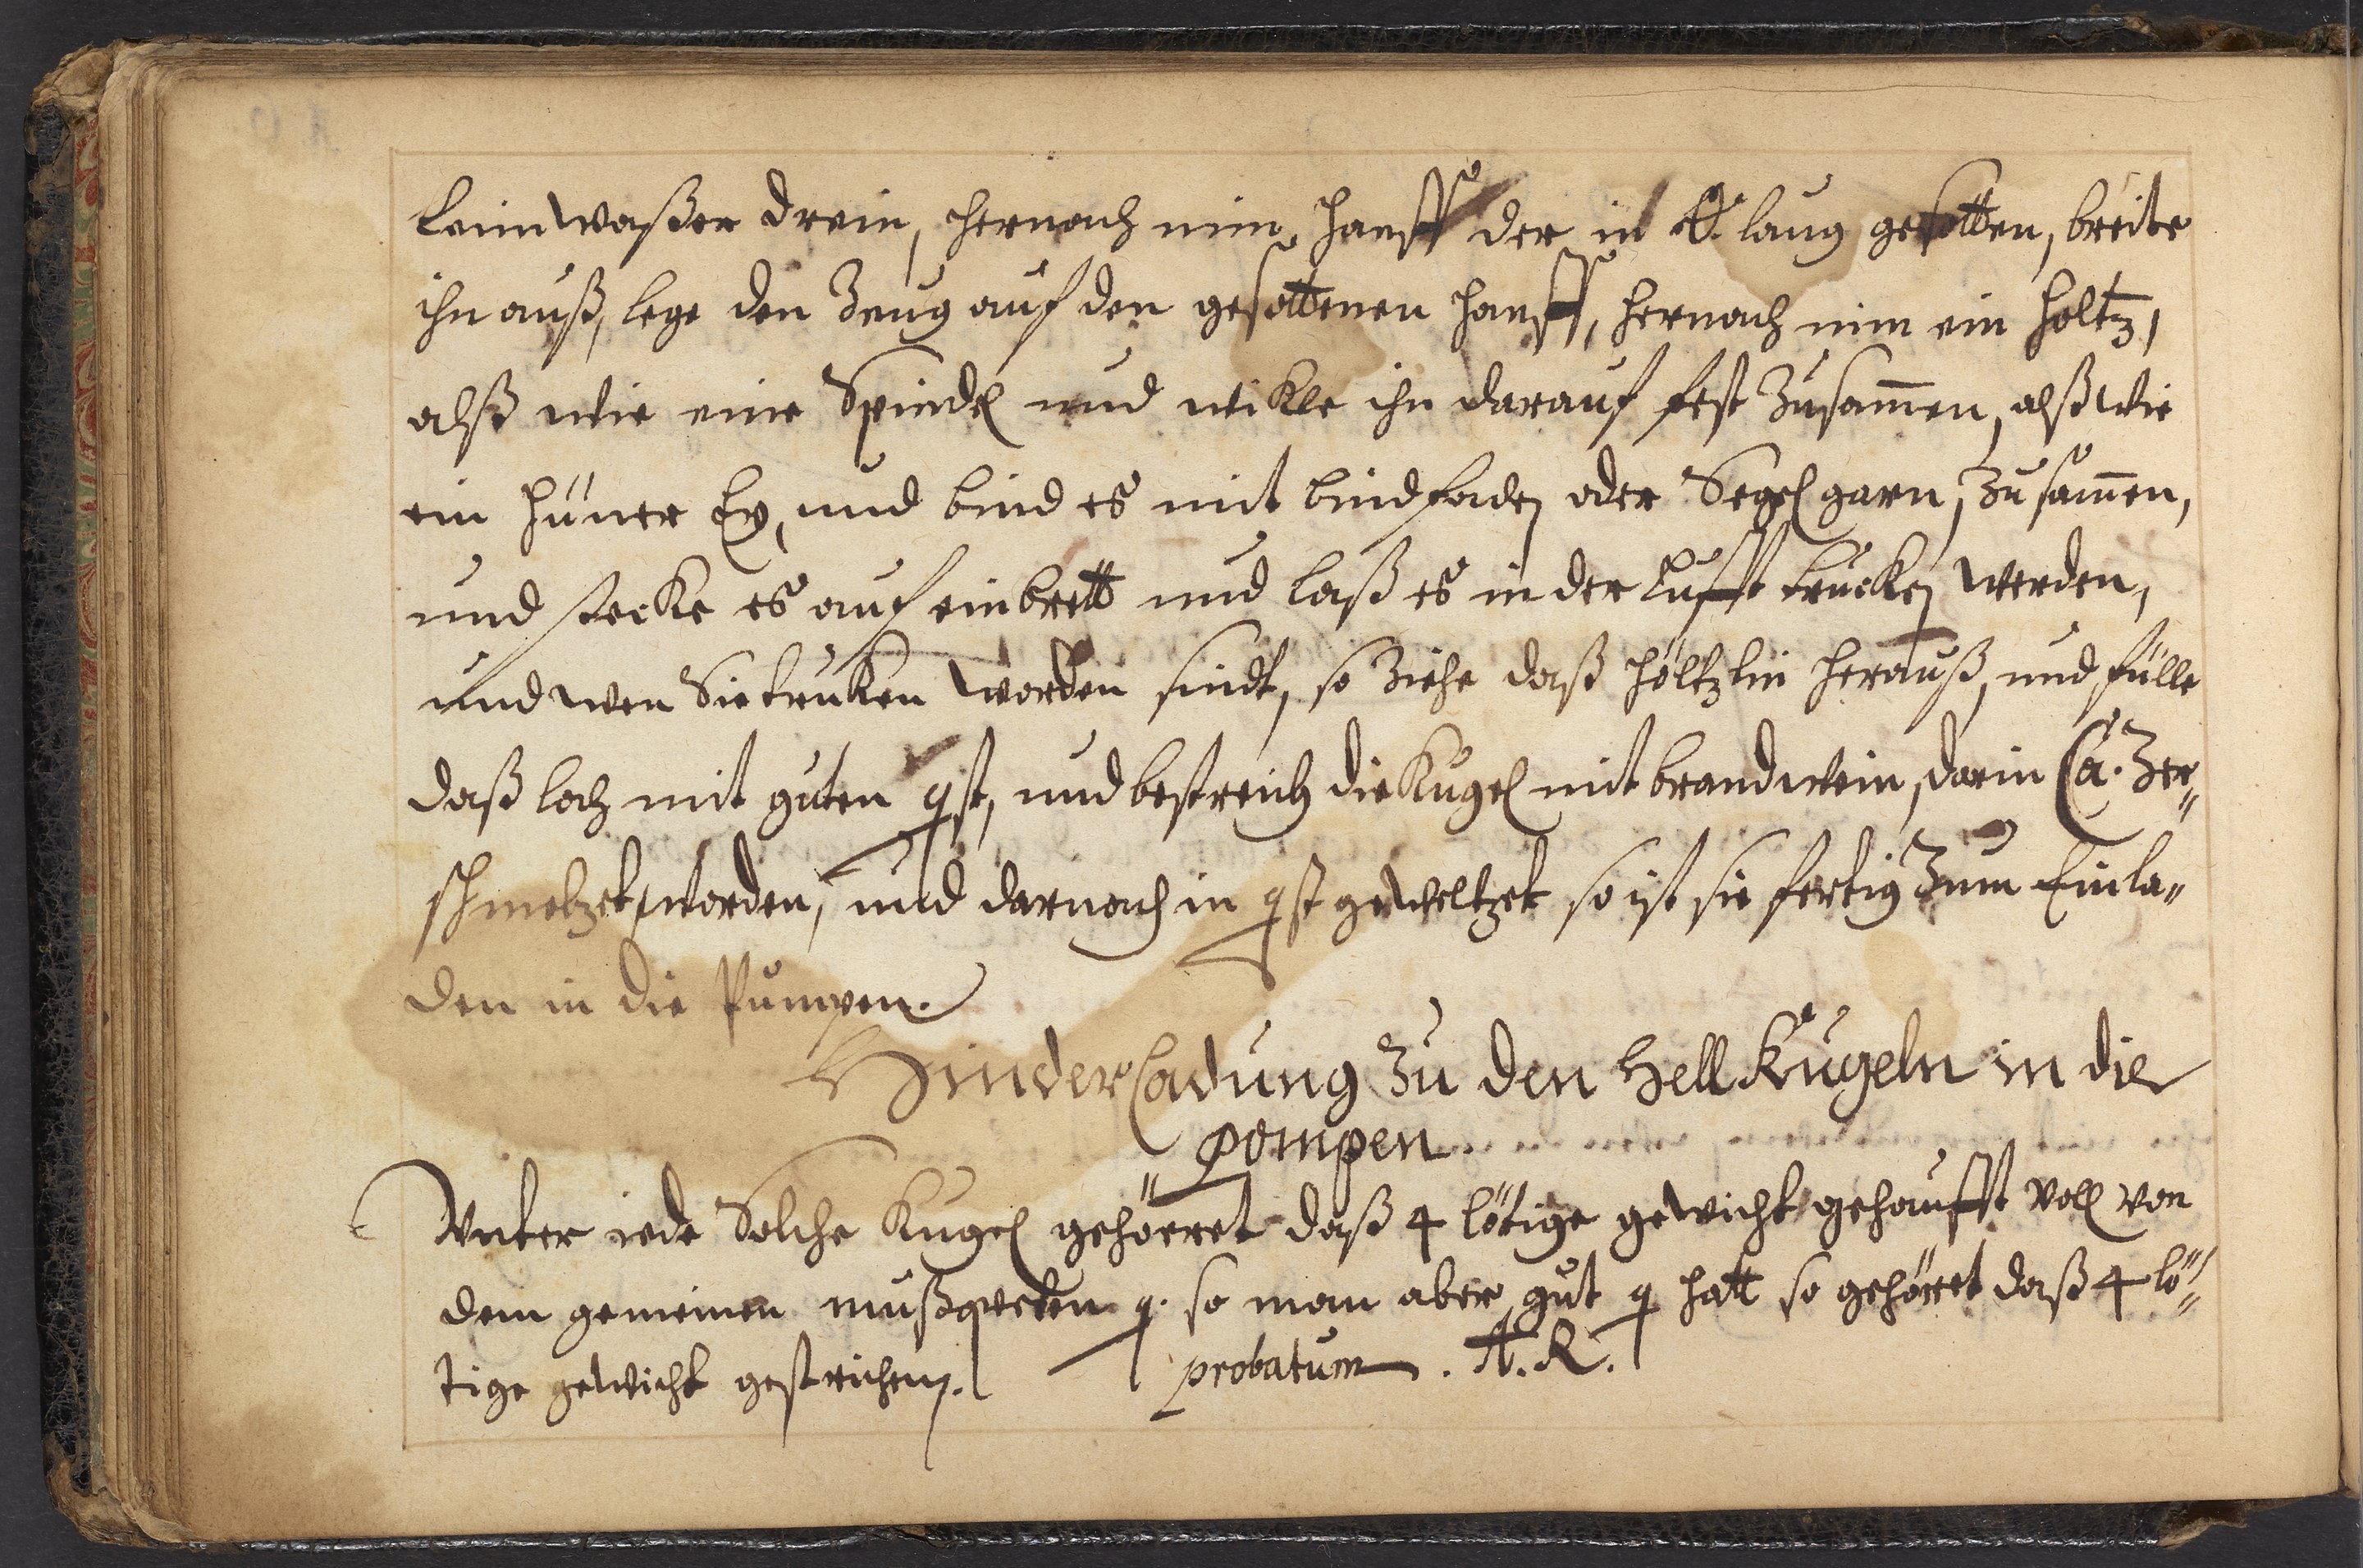 leimwaßer drein, hernach nim hanff der in laug gesotten, breite
ihn auß, lege den Zeug auf den gesottenen hanff, hernach nim ein holtz,
alß wie eine Spindel und wikle ihn darauf fest Zusam̄en, alß wie
ein hüner Ey, und bind es mit bindfaden oder Segel garn, Zusam̄en,
und stecke es auf ein brett und laß es in der Lufft trucken werden,
und wen Sie truken worden sindt, so Ziehe daß höltzlin herauß, und fülle
daß loch mit guten qst, und bestreich die Kugel mit brandwein, darin Ca. Zer„
schmeltzet worden, und darnach in qst geweltzet so ist sie fertig Zum Einla„
den in die Pumpen.
Hinder Ladung Zu den Hell Kugeln in die
pompen.
Unter iede Solche Kugel gehöeret daß 4 lötige gewicht gehaufft voll von
dem gemeinen mußqveten q. so man aber gut q hatt so gehörret daß 4 lö„
tige gewicht gestrichen.
probatum. A. R.